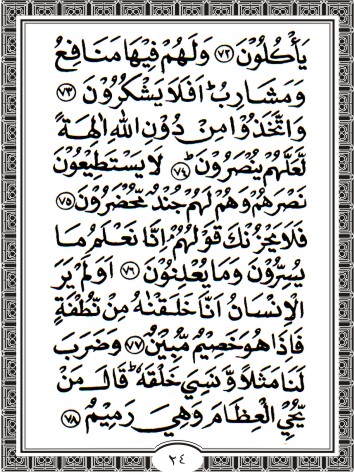 يَاْكُلُوْنَ ﴿٧٢﴾ وَلَهُمْ فِيْهَا مَنَافِعُ
وَمَشَارِبُ ؕ اَفَلَا يَشْكُرُوْنَ ﴿٧٣﴾
وَاتَّخَذُوْا مِنْ دُوْنِ اللّٰهِ اٰلِهَةً
لَّعَلَّهُمْ يُنْصَرُوْنَ ؕ ﴿٧٤﴾ لَا يَسْتَطِيْعُوْنَ
نَصْرَهُمْ وَهُمْ لَهُمْ جُنْدٌ مُّحْضَرُوْنَ ﴿٧٥﴾
فَلَا يَحْزُنْكَ قَوْلُهُمْ ۘ اِنَّا نَعْلَمُ مَا
يُسِرُّوْنَ وَمَا يُعْلِنُوْنَ ﴿٧٦﴾ اَوَلَمْ يَرَ
الْاِنْسَانُ اَنَّا خَلَقْنٰهُ مِنْ نُّطْفَةٍ
فَاِذَا هُوَ خَصِيْمٌ مُّبِيْنٌ ﴿٧٧﴾ وَضَرَبَ
لَنَا مَثَلًا وَّنَسِيَ خَلْقَهٗ ؕ قَالَ مَنْ
يُّحْيِ الْعِظَامَ وَهِيَ رَمِيْمٌ ﴿٧٨﴾
٢٤